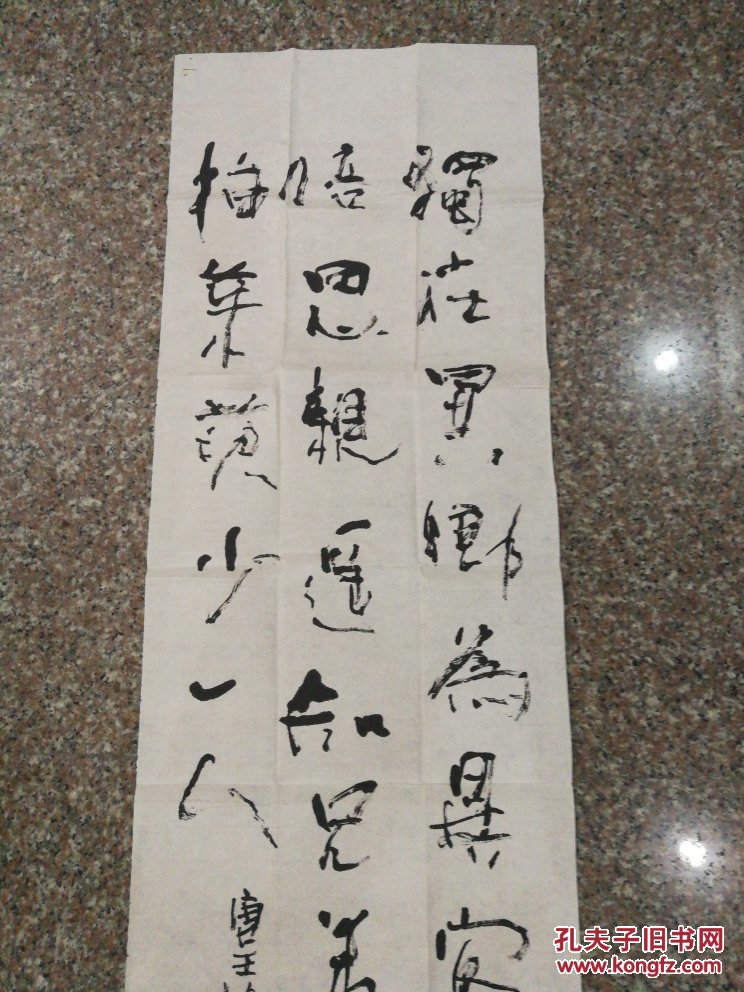 獨在異鄉為異客
倍思親遙知兄弟
插茱萸少一人
唐王
孔夫子旧书网
www.kongfz.com